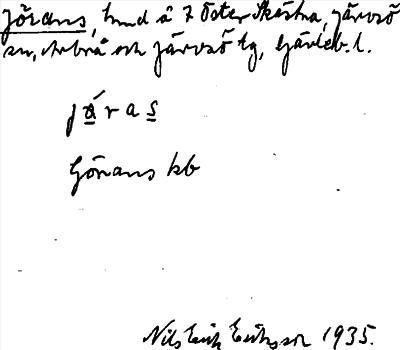 Jörans, hmd å 7 Öster Skästra, Järvsö
sn, Arbrå och Järvsö tg, Gävleb. l.
jǻras
Görans kb
Nils Erik Eriksson 1935.